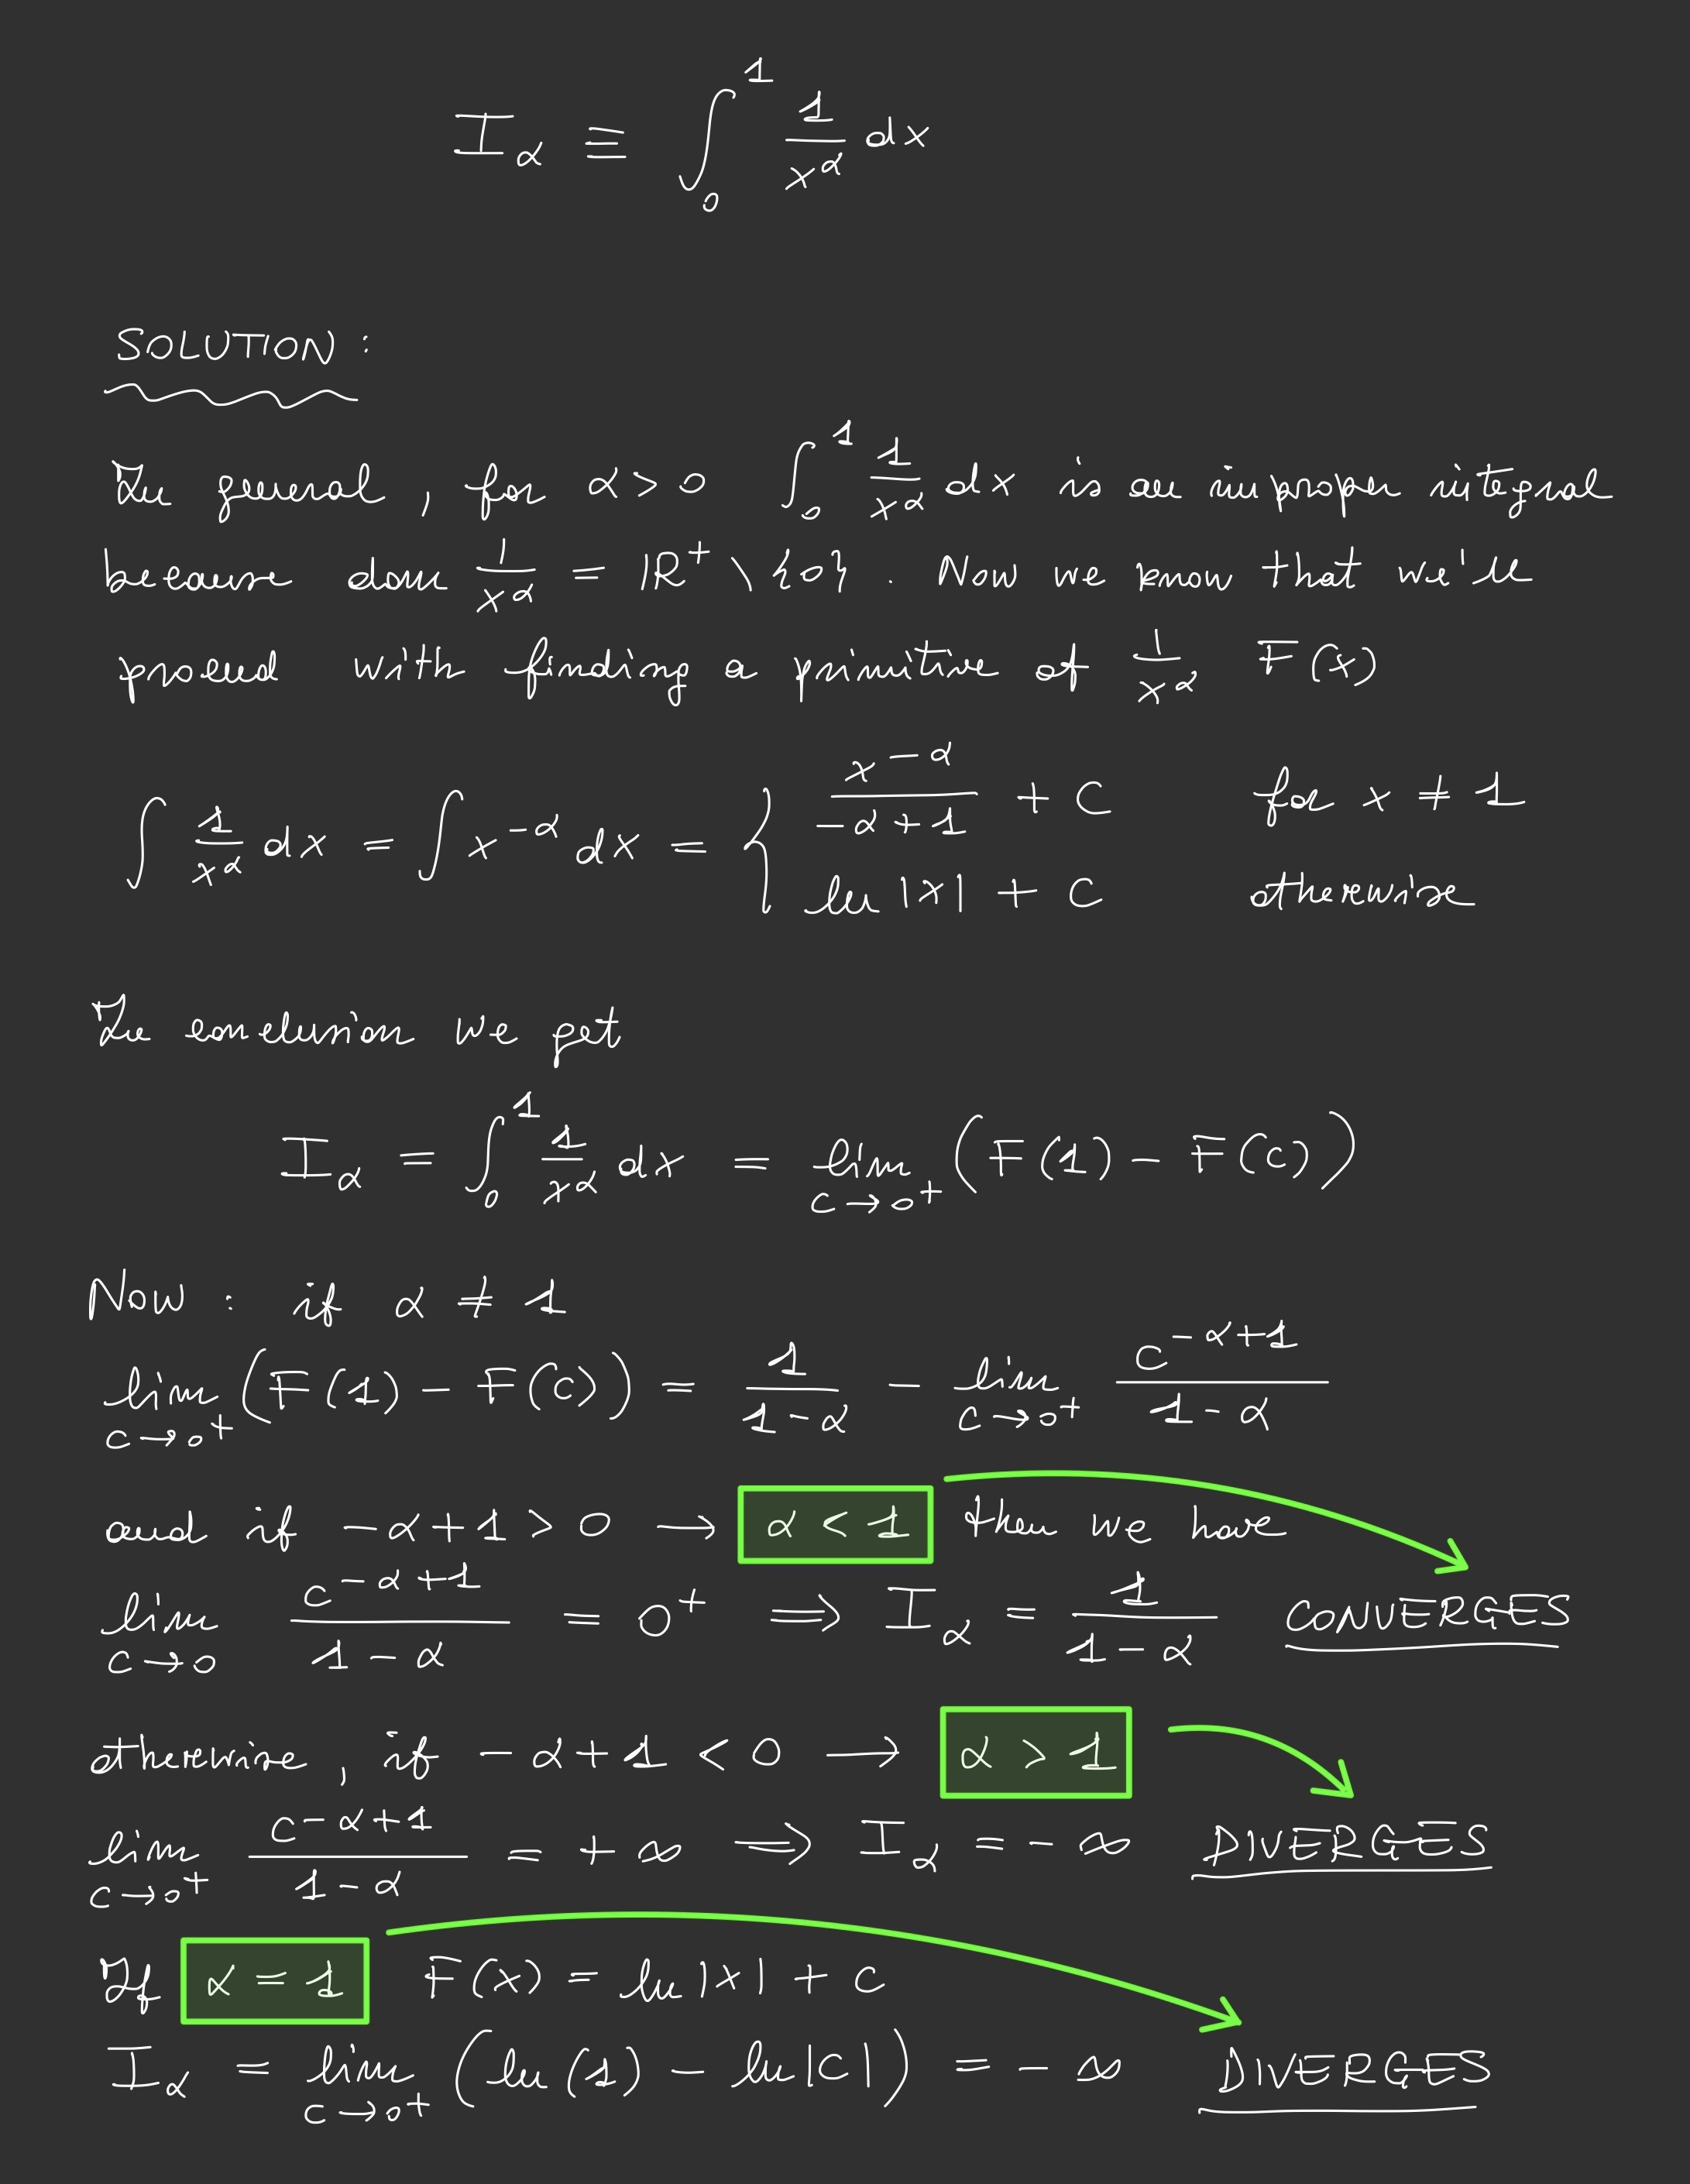 I_α ≡ ∫_0^1 1/x^α dx
SOLUTION :
In general , for α > 0 ∫_0^1 1/x^α dx is an improper integral
because dom 1/x^α = ℝ^+ \ {0} . Now we know that we'll
proceed with finding a primitive of 1/x^α F(x)
∫ 1/x^α dx = ∫ x^{-α} dx = { x^{-α}/(-α+1) + C for x ≠ 1
ln |x| + C otherwise
In conclusion we get
I_α = ∫_0^1 1/x^α dx = lim_{c→0^+} (F(1) - F(c))
Now : if α ≠ 1
lim_{c→0^+} (F(1) - F(c)) = 1/(1-α) - lim_{c→0^+} c^{-α+1}/(1-α)
and if -α+1 > 0 → α < 1 then we have
lim_{c→0} c^{-α+1}/(1-α) = 0^+ ⟹ I_α = 1/(1-α) CONVERGES
otherwise , if -α+1 < 0 → α > 1
lim_{c→0^+} c^{-α+1}/(1-α) = +∞ ⟹ I_α = -∞ DIVERGES
If α = 1 F(x) = ln |x| + c
I_α = lim_{c→0^+} (ln(1) - ln|c|) = -∞ DIVERGES